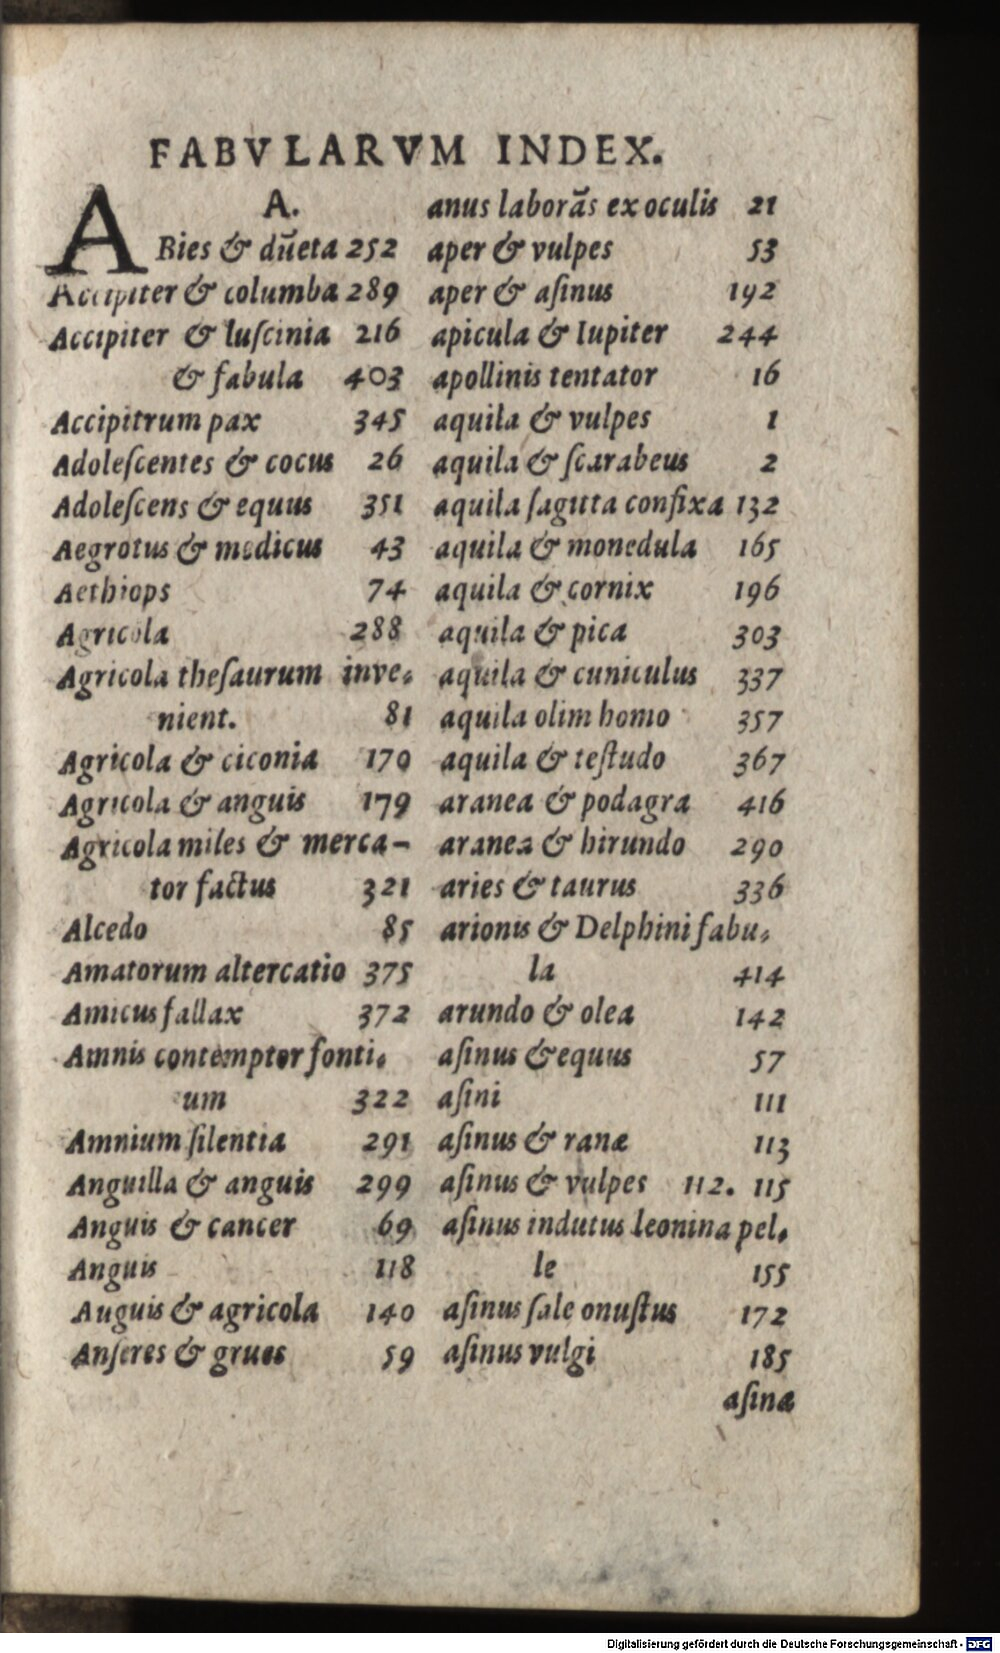 FABVLARVM INDEX.
A.
ARies & dũeta 252
Accipiter & columba 289
Accipiter & luſcinia 216
& fabula 403
Accipitrum pax 345
Adoleſcentes & cocus 26
Adoleſcens & equus 351
Aegrotus & medicus 43
Aethiops 74
Agricola 288
Agricola theſaurum inve-
nient. 81
Agricola & ciconia 170
Agricola & anguis 179
Agricola miles & merca-
tor factus 321
Alcedo 85
Amatorum altercatio 375
Amicus fallax 372
Amnis contemptor fonti-
um 322
Amnium ſilentia 291
Anguilla & anguis 299
Anguis & cancer 69
Anguis 118
Auguis & agricola 140
Anſeres & grues 59
anus laborãs ex oculis 21
aper & vulpes 53
aper & aſinus 192
apicula & Iupiter 244
apollinis tentator 16
aquila & vulpes 1
aquila & ſcarabeus 2
aquila ſagitta confixa 132
aquila & monedula 165
aquila & cornix 196
aquila & pica 303
aquila & cuniculus 337
aquila olim homo 357
aquila & teſtudo 367
aranea & podagra 416
aranea & hirundo 290
aries & taurus 336
arionis & Delphini fabu-
la 414
arundo & olea 142
aſinus & equus 57
aſini 111
aſinus & ranæ 113
aſinus & vulpes 112. 115
aſinus indutus leonina pel-
le 155
aſinus ſale onuſtus 172
aſinus vulgi 185
aſinæ
Digitalisierung gefördert durch die Deutsche Forschungsgemeinschaft - DFG